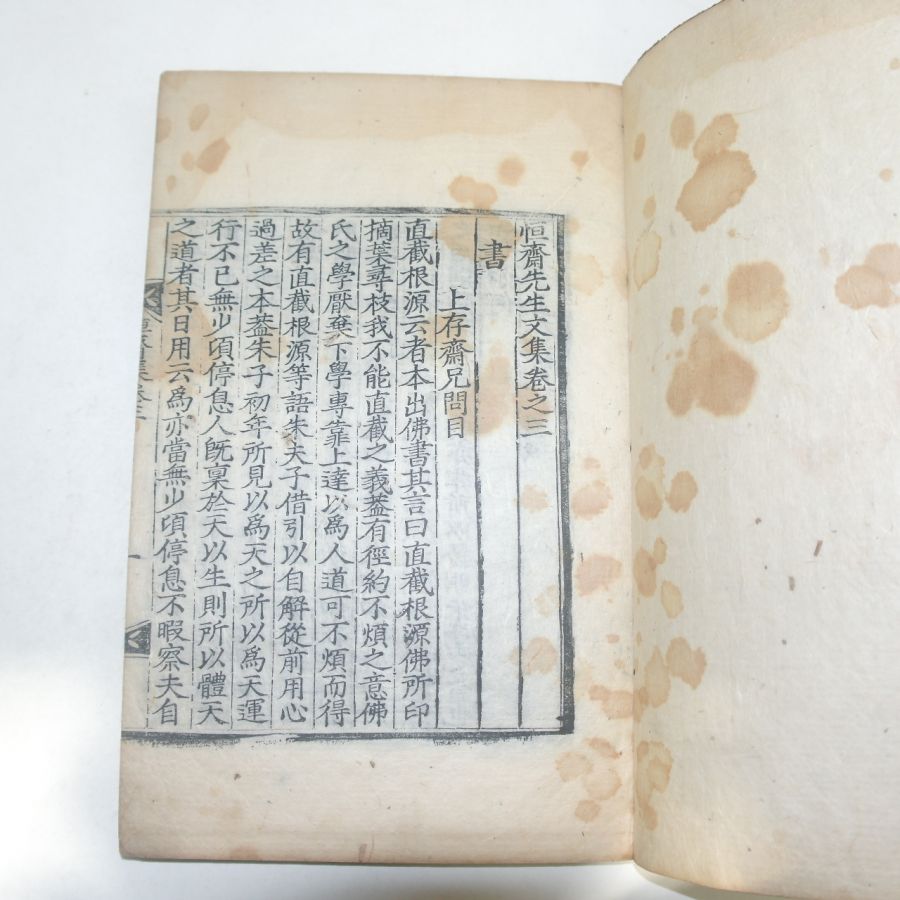 恒齋先生文集卷之三
書
上存齋兄問目
直截根源云者本出佛書其言曰直截根源佛所印
摘葉尋枝我不能直截之義蓋有徑約不煩之意佛
氏之學厭棄下學專靠上達以爲人道可不煩而得
故有直截根源等語朱夫子借引以自解從前用心
過差之本蓋朱子初年所見以爲天之所以爲天運
行不已無少頃停息人旣稟於天以生則所以體天
之道者其日用云爲亦當無少頃停息不暇察夫自
恒齋集卷三
一